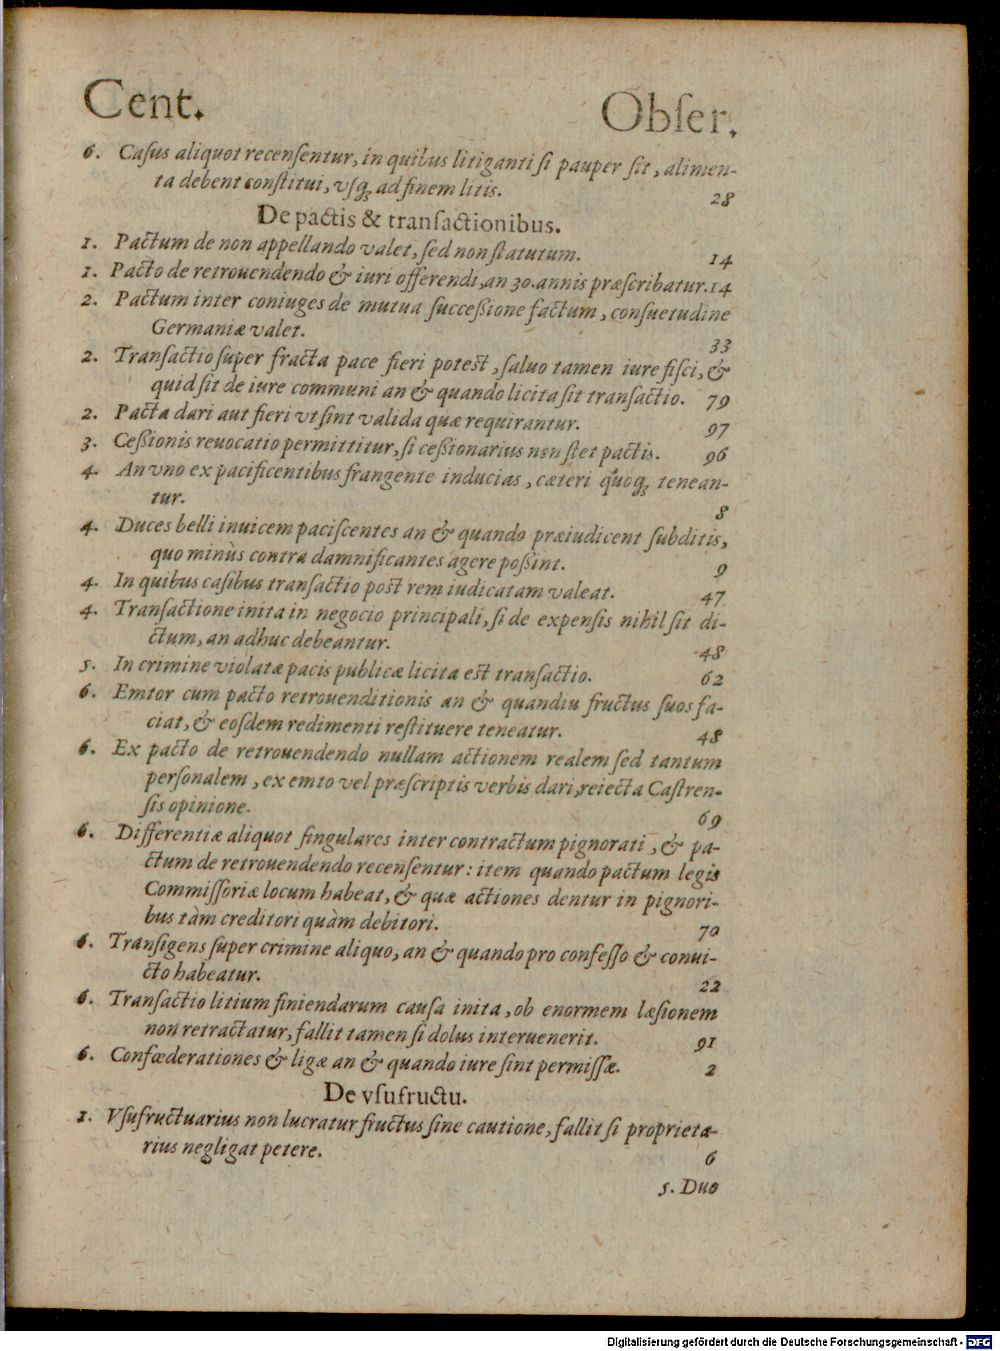 Cent. Obſer.
6. Caſus aliquot recenſentur, in quibus litiganti ſi pauper ſit, alimen-
ta debent conſtitui, vſq́; ad finem litis. 28
De pactis & transactionibus.
1. Pactum de non appellando valet, ſed non ſtatutum. 14
1. Pacto de retrouendendo & iuri offerendi, an 30. annis præſcribatur. 14
2. Pactum inter coniuges de mutua ſucceßione factum, conſuetudine
Germaniæ valet. 33
2. Tranſactio ſuper fracta pace fieri potest, ſaluo tamen iure fiſci, &
quid ſit de iure communi an & quando licita ſit tranſactio. 79
2. Pacta dari aut fieri vt ſint valida quæ requirantur. 97
3. Ceßionis reuocatio permittitur, ſi ceßionarius non ſtet pactis. 96
4. An vno ex pacificentibus frangente inducias, cæteri quoq́; tenean-
tur. 8
4. Duces belli inuicem paciſcentes an & quando præiudicent ſubditis,
quo minùs contra damnificantes agere poßint. 9
4. In quibus caſibus tranſactio post rem iudicatam valeat. 47
4. Tranſactione inita in negocio principali, ſi de expenſis nihil ſit di-
ctum, an adhuc debeantur. 48
5. In crimine violatæ pacis publicæ licita est tranſactio. 62
6. Emtor cum pacto retrouenditionis an & quandiu fructus ſuos fa-
ciat, & eoſdem redimenti reſtituere teneatur. 48
6. Ex pacto de retrouendendo nullam actionem realem ſed tantum
perſonalem, ex emto vel præſcriptis verbis dari, reiecta Caſtren-
ſis opinione. 69
6. Differentiæ aliquot ſingulares inter contractum pignorati, & pa-
ctum de retrouendendo recenſentur: item quando pactum legis
Commiſſoriæ locum habeat, & quæ actiones dentur in pignori-
bus tàm creditori quàm debitori. 70
6. Tranſigens ſuper crimine aliquo, an & quando pro confeſſo & conui-
cto habeatur. 22
6. Tranſactio litium finiendarum cauſa inita, ob enormem læſionem
non retractatur, fallit tamen ſi dolus interuenerit. 91
6. Confœderationes & ligæ an & quando iure ſint permiſſæ. 2
De vſufructu.
1. Vſufructuarius non lucratur fructus ſine cautione, fallit ſi proprieta-
rius negligat petere. 6
5. Duo
Digitalisierung gefördert durch die Deutsche Forschungsgemeinschaft - DFG